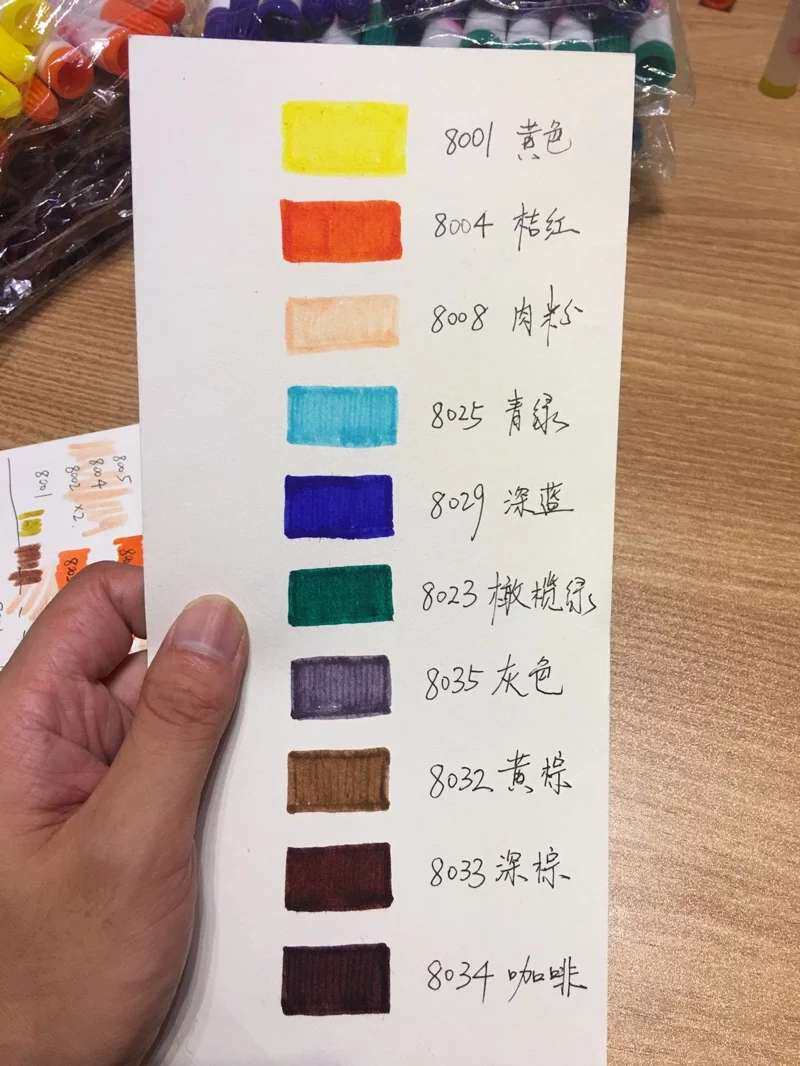 8001 黄色
8004 桔红
8008 肉粉
8025 青绿
8029 深蓝
8023 橄榄绿
8035 灰色
8032 黄棕
8033 深棕
8034 咖啡
8005
8004
8002 ×2.
8001